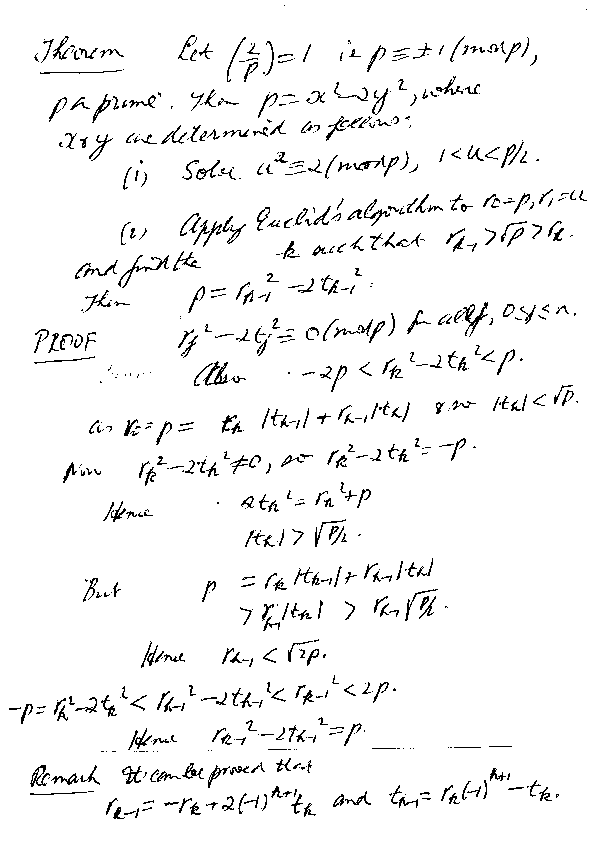 Theorem Let (2/p)=1 ie p≡±1(mod p),
p a prime. Then p=x²-2y², where
x & y are determined as follows:
(i) Solve u²≡2(mod p), 1<u<p/2.
(2) Apply Euclid's algorithm to r₀=p, r₁=u
and find the k such that rₖ₋₁>√p>rₖ.
Then p=rₖ₋₁²-2tₖ₋₁².
PROOF rⱼ²-2tⱼ²≡0(mod p) for all j, 0≤j≤n.
Also -2p<rₖ²-2tₖ²<p.
as r₀=p= rₖ|tₖ₋₁|+rₖ₋₁|tₖ| & so |tₖ|<√p.
Now rₖ²-2tₖ²≠0, so rₖ²-2tₖ²=-p.
Hence 2tₖ²=rₖ²+p
|tₖ|>√p/2.
But p =rₖ|tₖ₋₁|+rₖ₋₁|tₖ|
>rₖ₋₁|tₖ| > rₖ₋₁√p/2.
Hence rₖ₋₁<√2p.
-p=rₖ²-2tₖ²<rₖ₋₁²-2tₖ₋₁²<rₖ₋₁²<2p.
Hence rₖ₋₁²-2tₖ₋₁²=p.
Remark It can be proved that
rₖ₋₁=-rₖ+2(-1)ᵏ⁺¹tₖ and tₖ₋₁=rₖ(-1)ᵏ⁺¹-tₖ.